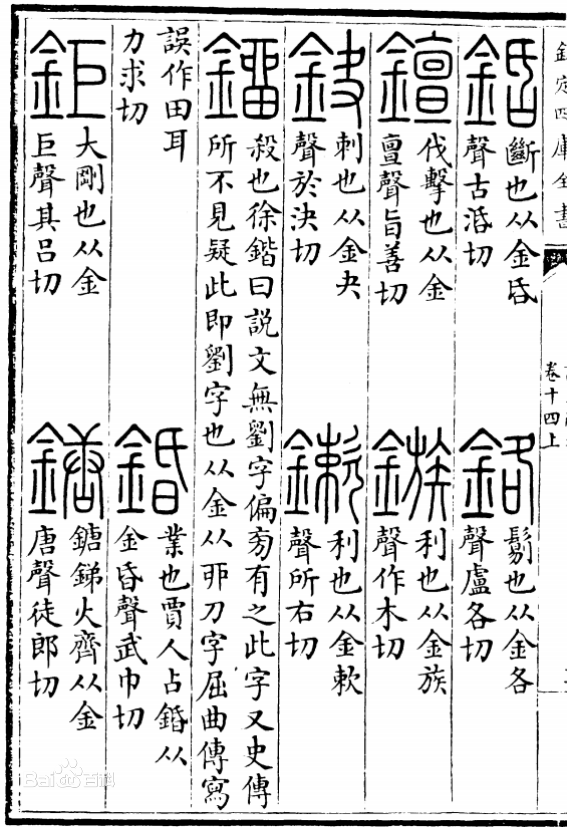 欽定四庫全書
卷十四上
斷也从金昏
聲古活切
鉻
鬄也从金各
聲盧各切
伐擊也从金
亶聲旨善切
鏃
利也从金族
聲作木切
鈌
刺也从金夬
聲於決切
鏉
利也从金欶
聲所右切
鎦
殺也徐鍇曰說文無劉字偏旁有之此字又史傳
所不見疑此即劉字也从金从丣刀字屈曲傳寫
誤作田耳
力求切
錉
業也賈人占錉从
金昏聲武巾切
鉅
大剛也从金
巨聲其呂切
鎕
鎕銻火齊从金
唐聲徒郎切
Bai百科